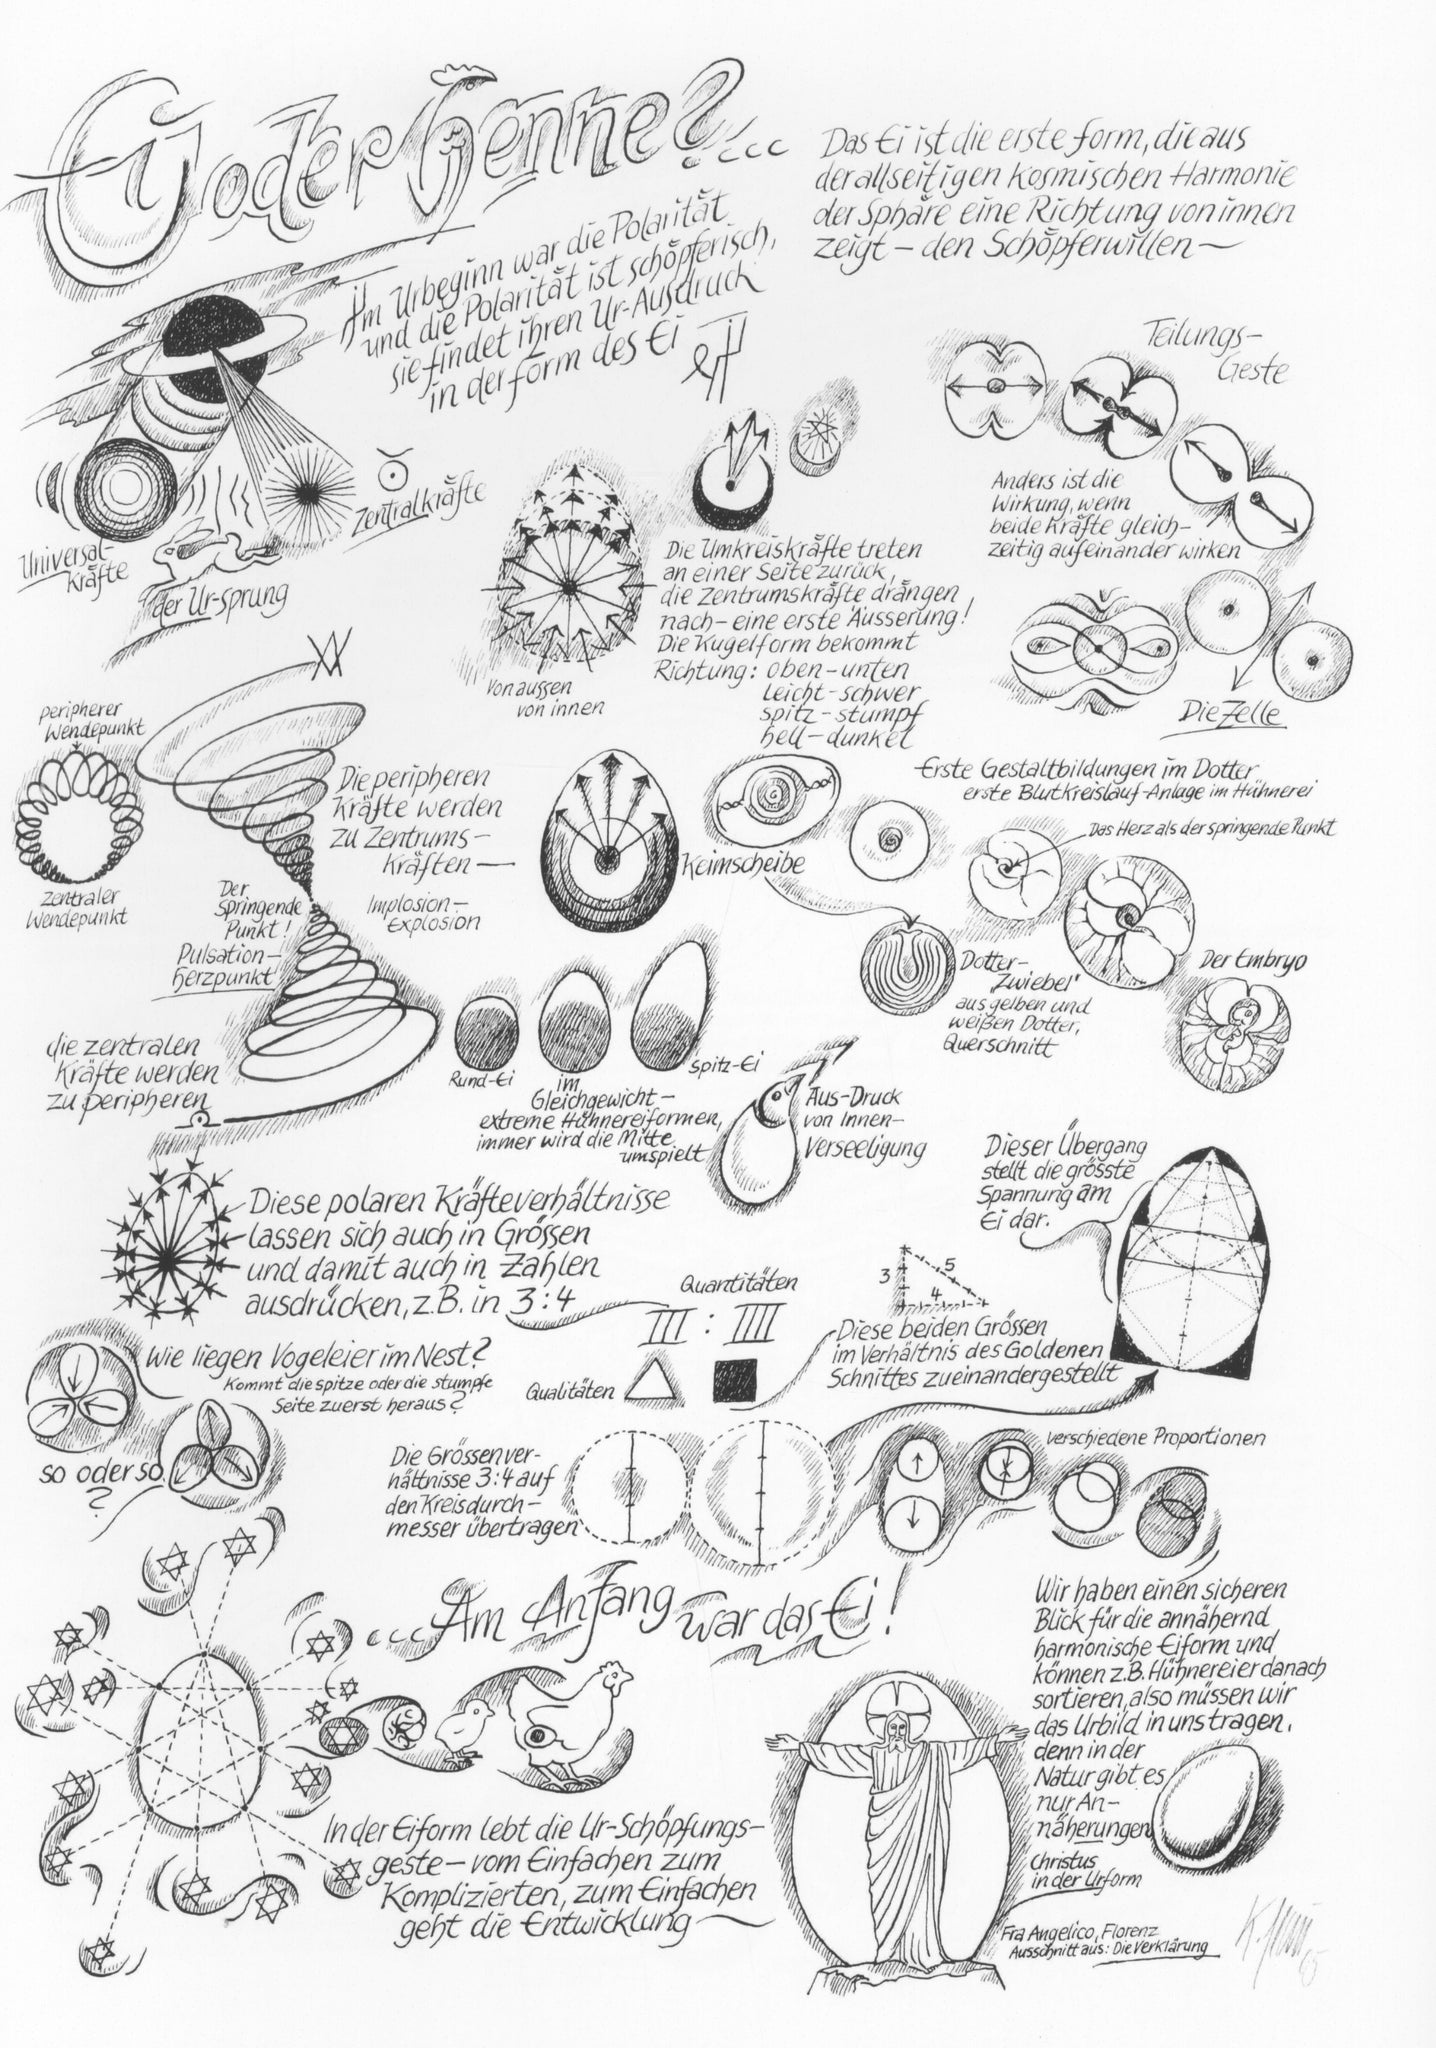 Ei oder Henne?...
Das Ei ist die erste Form, die aus
der allseitigen kosmischen Harmonie
der Sphäre eine Richtung von innen
zeigt – den Schöpferwillen –
Im Urbeginn war die Polarität
und die Polarität ist schöpferisch,
sie findet ihren Ur-Ausdruck
in der Form des Ei
Universal-
kräfte
Zentralkräfte
der Ur-sprung
Von aussen
von innen
Die Umkreiskräfte treten
an einer Seite zurück,
die Zentrumskräfte drängen
nach – eine erste Äusserung!
Die Kugelform bekommt
Richtung: oben – unten
leicht – schwer
spitz – stumpf
hell – dunkel
Teilungs-
Geste
Anders ist die
Wirkung, wenn
beide Kräfte gleich-
zeitig aufeinander wirken
Die Zelle
peripherer
Wendepunkt
Zentraler
Wendepunkt
Die peripheren
Kräfte werden
zu Zentrums-
kräften –
Implosion –
Explosion
Der
Springende
Punkt!
Pulsation –
Herzpunkt
die zentralen
Kräfte werden
zu peripheren
Erste Gestaltbildungen im Dotter
erste Blutkreislauf-Anlage im Hühnerei
Das Herz als der springende Punkt
Keimscheibe
Dotter-
"Zwiebel"
aus gelben und
weißen Dotter,
Querschnitt
Der Embryo
Rund-Ei
im
Gleichgewicht –
Spitz-Ei
extreme Hühnereiformen,
immer wird die Mitte
umspielt
Aus-Druck
von Innen-
Verseeligung
Diese polaren Kräfteverhältnisse
lassen sich auch in Grössen
und damit auch in Zahlen
ausdrücken, z.B. in 3:4
Quantitäten
III : IIII
Qualitäten
3
5
4
Diese beiden Grössen
im Verhältnis des Goldenen
Schnittes zueinandergestellt
Dieser Übergang
stellt die grösste
Spannung am
Ei dar.
Wie liegen Vogeleier im Nest?
Kommt die spitze oder die stumpfe
Seite zuerst heraus?
so oder so
?
Die Grössenver-
hältnisse 3:4 auf
den Kreisdurch-
messer übertragen
verschiedene Proportionen
...Am Anfang war das Ei!
Wir haben einen sicheren
Blick für die annähernd
harmonische Eiform und
können z.B. Hühnereier danach
sortieren, also müssen wir
das Urbild in uns tragen,
denn in der
Natur gibt es
nur An-
näherungen
Christus
in der Urform
In der Eiform lebt die Ur-Schöpfungs-
geste – vom Einfachen zum
Komplizierten, zum Einfachen
geht die Entwicklung –
Fra Angelico, Florenz
Ausschnitt aus: Die Verklärung